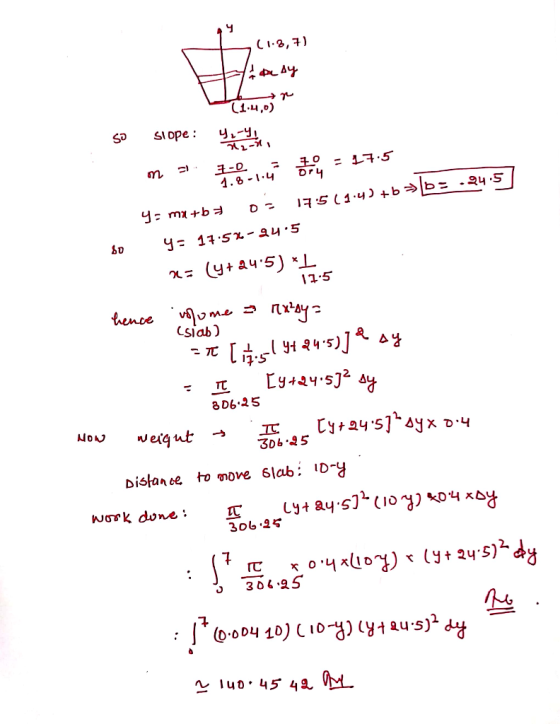 y
(1.8, 7)
Δy
x
(1.4,0)
so slope: y₂-y₁/x₂-x₁
m ⇒ 7-0/1.8-1.4 = 70/0.4 = 17.5
y= mx+b ⇒ 0 = 17.5(1.4)+b ⇒ b = -24.5
so y = 17.5x - 24.5
x = (y+24.5) × 1/17.5
hence volume ⇒ πx²Δy =
(slab)
= π [1/17.5 (y+24.5)]² Δy
= π/306.25 [y+24.5]² Δy
Now weight → π/306.25 [y+24.5]² Δy × 0.4
Distance to move slab: 10-y
work done: π/306.25 (y+24.5]² (10-y) × 0.4 × Δy
: ∫₀⁷ π/306.25 × 0.4 × (10-y) × (y+24.5)² dy
: ∫₀⁷ (0.00410) (10-y) (y+24.5)² dy
≃ 140.4542